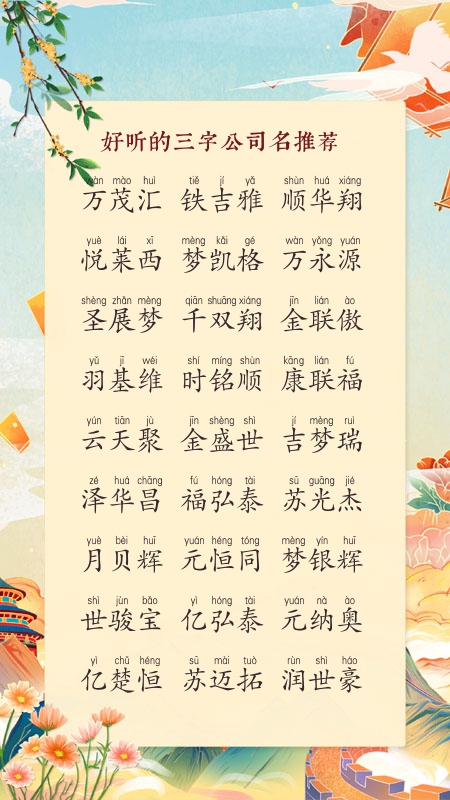 好听的三字公司名推荐
wàn mào huì tiě jí yǎ shùn huá xiáng
万茂汇 铁吉雅 顺华翔
yuè lái xī mèng kǎi gé wàn yǒng yuán
悦莱西 梦凯格 万永源
shèng zhǎn mèng qiān shuāng xiáng jīn lián ào
圣展梦 千双翔 金联傲
yǔ jī wéi shí míng shùn kāng lián fú
羽基维 时铭顺 康联福
yún tiān jù jīn shèng shì jí mèng ruì
云天聚 金盛世 吉梦瑞
zé huá chāng fú hóng tài sū guāng jié
泽华昌 福弘泰 苏光杰
yuè bèi huī yuán héng tóng mèng yín huī
月贝辉 元恒同 梦银辉
shì jùn bǎo yì hóng tài yuán nà ào
世骏宝 亿弘泰 元纳奥
yì chǔ héng sū mài tuò rùn shì háo
亿楚恒 苏迈拓 润世豪